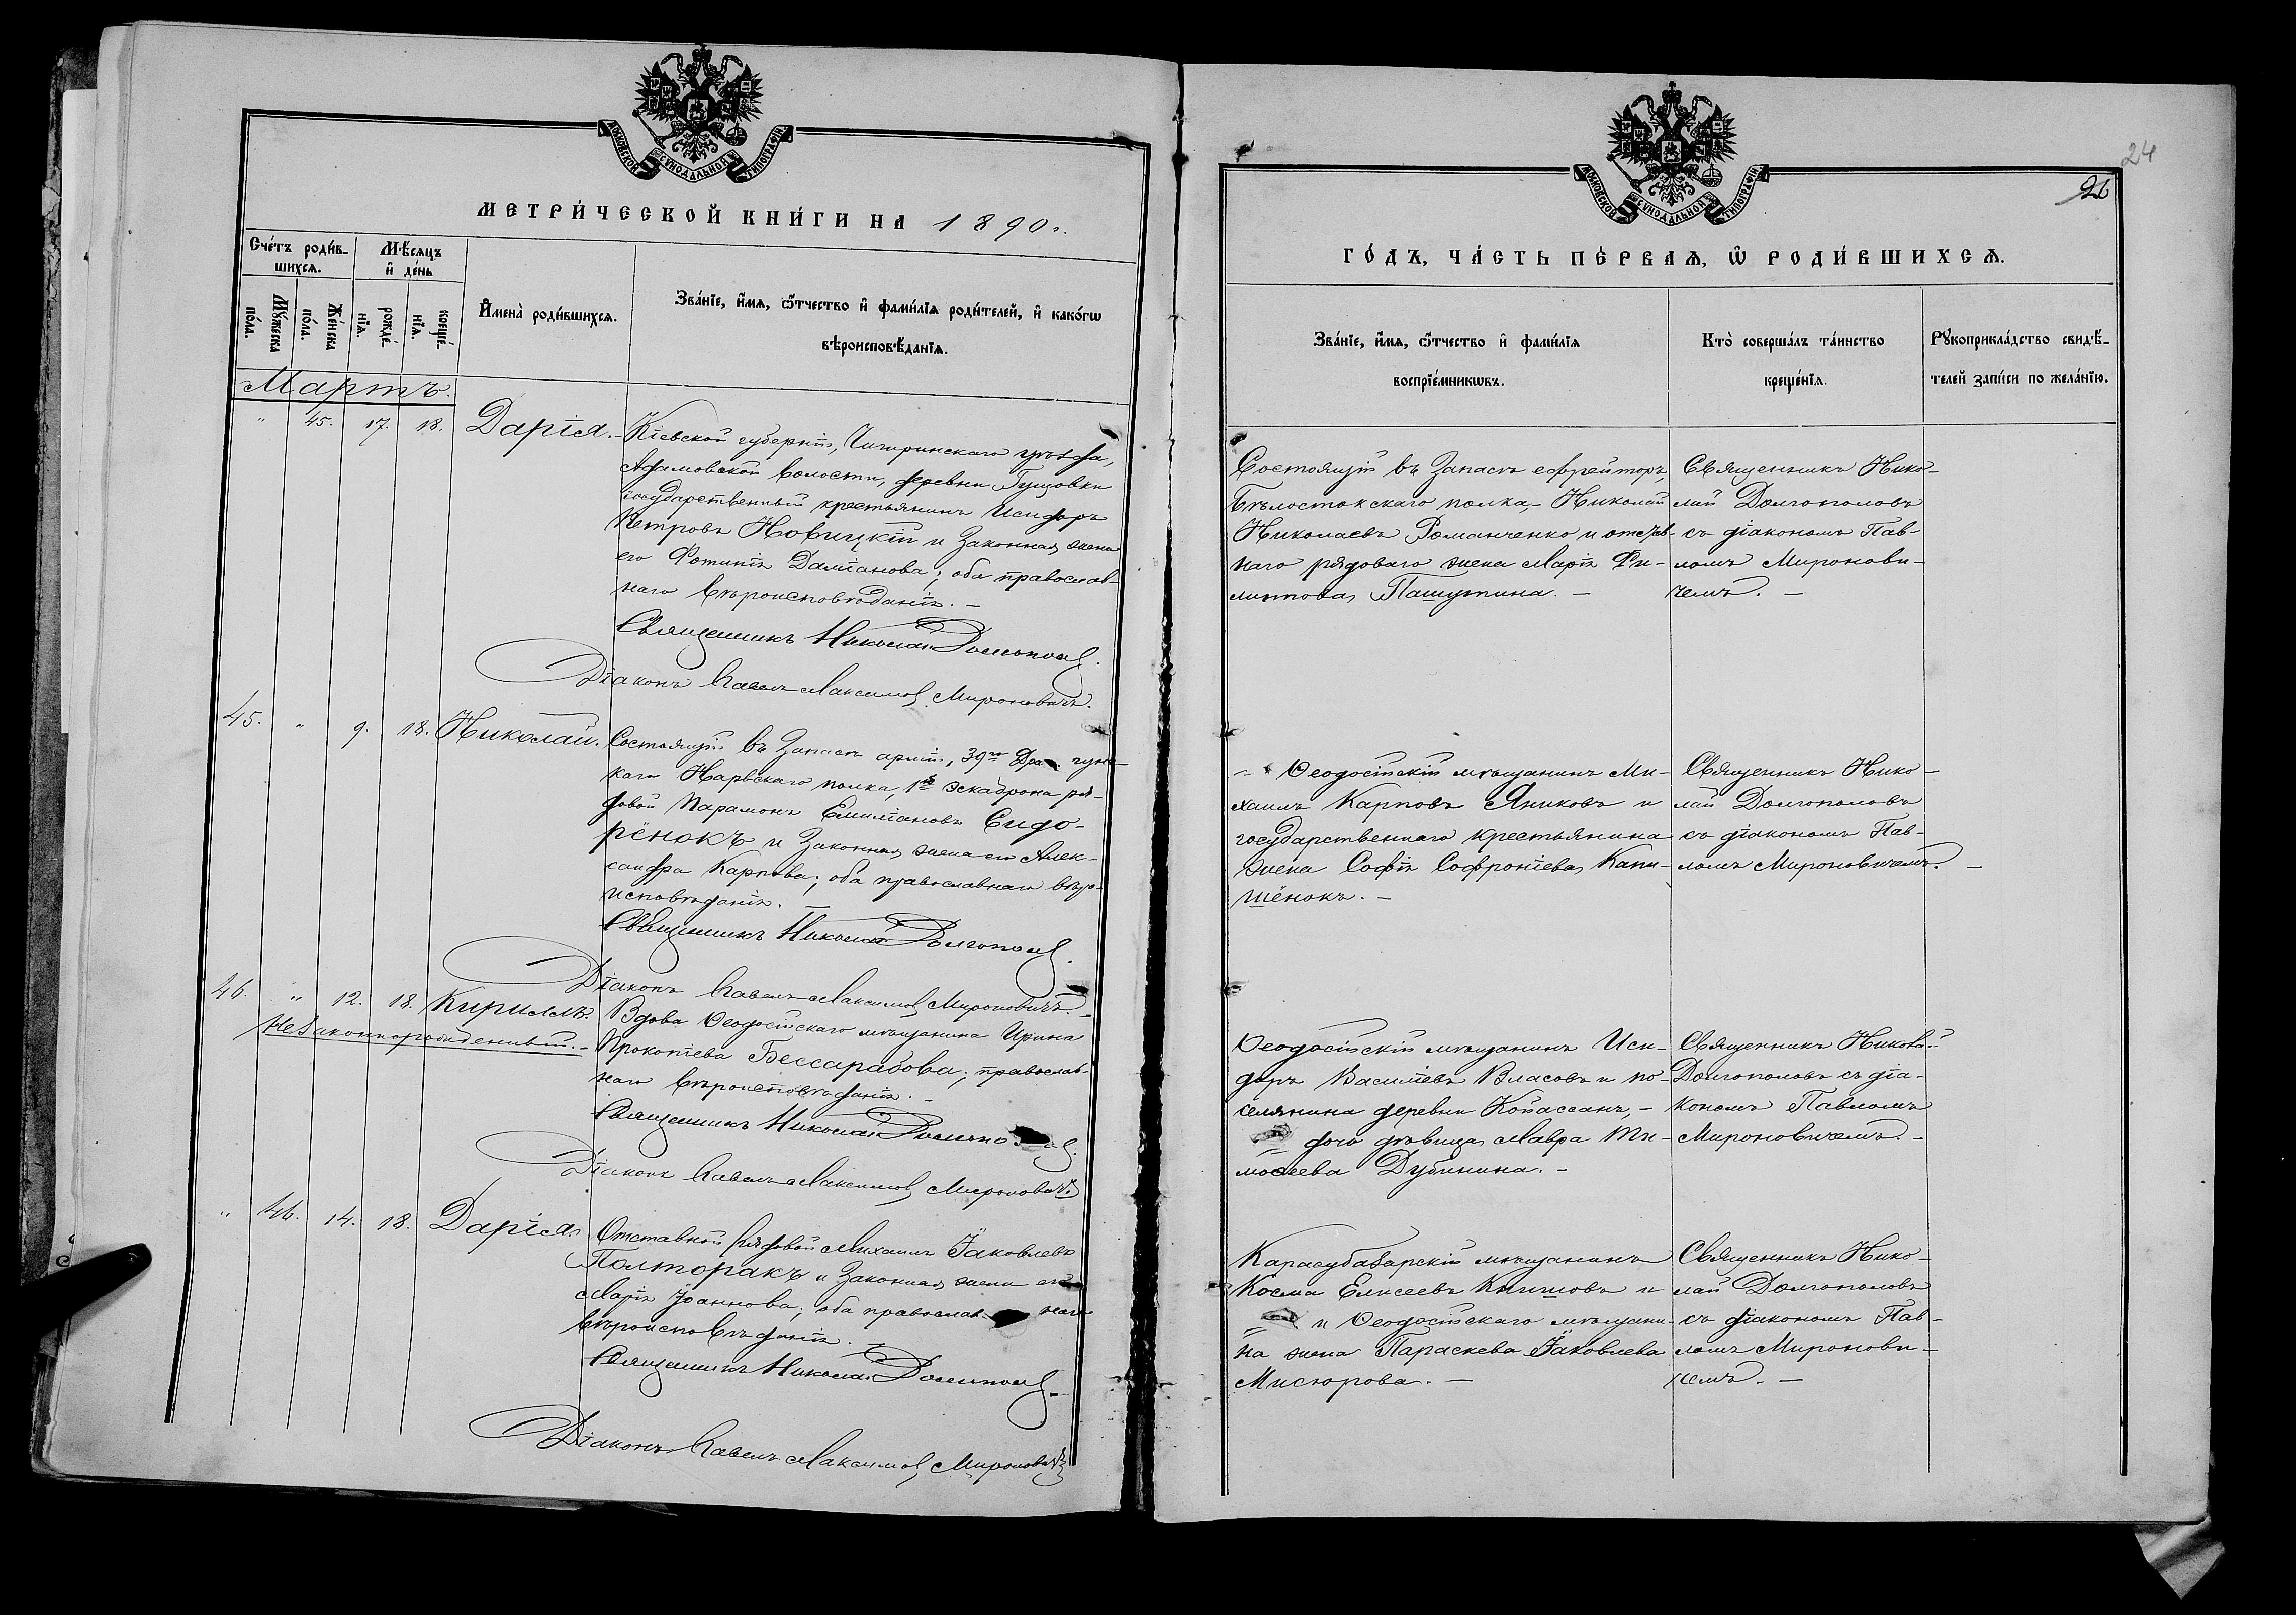 МОСКОВСКОЙ СѴНОДАЛЬНОЙ ТИПОГРАФІИ
МЕТРИ́ЧЕСКОЙ КНИ́ГИ НА 1890 г.
Сче́тъ роди́в-
шихсѧ.
Мѣ́сѧцъ
и҆ де́нь
Мꙋ́жеска
по́ла.
Же́нска
по́ла.
рожде́-
нїѧ.
креще́-
нїѧ.
И҆мена̀ роди́вшихсѧ.
Зва́нїе, и҆́мѧ, ѻ҆́тчество и҆ фами́лїѧ роди́телей, и҆ како́гѡ
вѣроисповѣ́данїѧ.
Мартъ.
" 45. 17. 18. Дарія.
Кіевской губерніи, Чигиринскаго уѣзда,
Адамовской волости, деревни Гущовки
государственный крестьянинъ Исидоръ
Петровъ Новицкій и законная жена
его Фотинія Даміанова; оба православ-
наго вѣроисповѣданія. –
Священникъ Николай Долгополов
Діаконъ Павелъ Максимов Мироновичъ.
45. " 9. 18. Николай.
Состоящій въ запасѣ арміи, 39го Драгунс-
каго Нарвскаго полка, 1го эскадрона ря-
довой Парамонъ Емиліановъ Сидо-
рёнокъ и законная жена его Алек-
сандра Карпова; оба православнаго вѣро-
исповѣданія. –
Священникъ Николай Долгополов
Діаконъ Павелъ Максимов Мироновичъ. –
46. " 12. 18. Кириллъ.
Незаконнорожденный. –
Вдова Ѳеодосійскаго мѣщанина Ирина
Прокопіева Бессарабова; православ-
наго вѣроисповѣданія. –
Священникъ Николай Долгополов
Діаконъ Павелъ Максимов Мироновичъ
" 46. 14. 18. Дарія.
Отставной рядовой Михаилъ Іаковлевъ
Полторакъ и законная жена его
Марія Іоаннова; оба православнаго
вѣроисповѣданія. –
Священникъ Николай Долгополов
Діаконъ Павелъ Максимов Мироновичъ
24
МОСКОВСКОЙ СѴНОДАЛЬНОЙ ТИПОГРАФІИ
ГО́ДЪ, ЧА́СТЬ ПЕ́РВАѦ, Ѡ҆ РОДИ́ВШИХСѦ.
Зва́нїе, и҆́мѧ, ѻ҆́тчество и҆ фами́лїѧ
воспрїе́мникѡвъ.
Кто̀ соверша́лъ та́инство
креще́нїѧ.
Рꙋкоприкла́дство свидѣ́-
телей за́писи по жела́нїю.
Состоящій въ запасѣ ефрейторъ,
Бѣлостокскаго полка, – Николай
Николаевъ Романченко и отстав-
наго рядоваго жена Марія Фи-
липпова Пашутина. –
Священникъ Нико-
лай Долгополовъ
съ діакономъ Пав-
ломъ Миронови-
чемъ. –
Ѳеодосійскій мѣщанинъ Ми-
хаилъ Карповъ Яниковъ и
государственнаго крестьянина
жена Софія Софроніева Капи-
шёнокъ. –
Священникъ Нико-
лай Долгополовъ
съ діакономъ Пав-
ломъ Мироновичемъ. –
Ѳеодосійскій мѣщанинъ Иси-
доръ Василіевъ Власовъ и по-
селянина деревни Койассанъ, –
дочь дѣвица Мавра Ти-
моѳеева Дубинина. –
Священникъ Николай
Долгополовъ съ діа-
кономъ Павломъ
Мироновичемъ. –
Карасубазарскій мѣщанинъ
Косма Елисеевъ Книшовъ и
и Ѳеодосійскаго мѣщани-
на жена Параскева Іаковлева
Мисюрова. –
Священникъ Нико-
лай Долгополовъ
съ діакономъ Пав-
ломъ Миронови-
чемъ. –